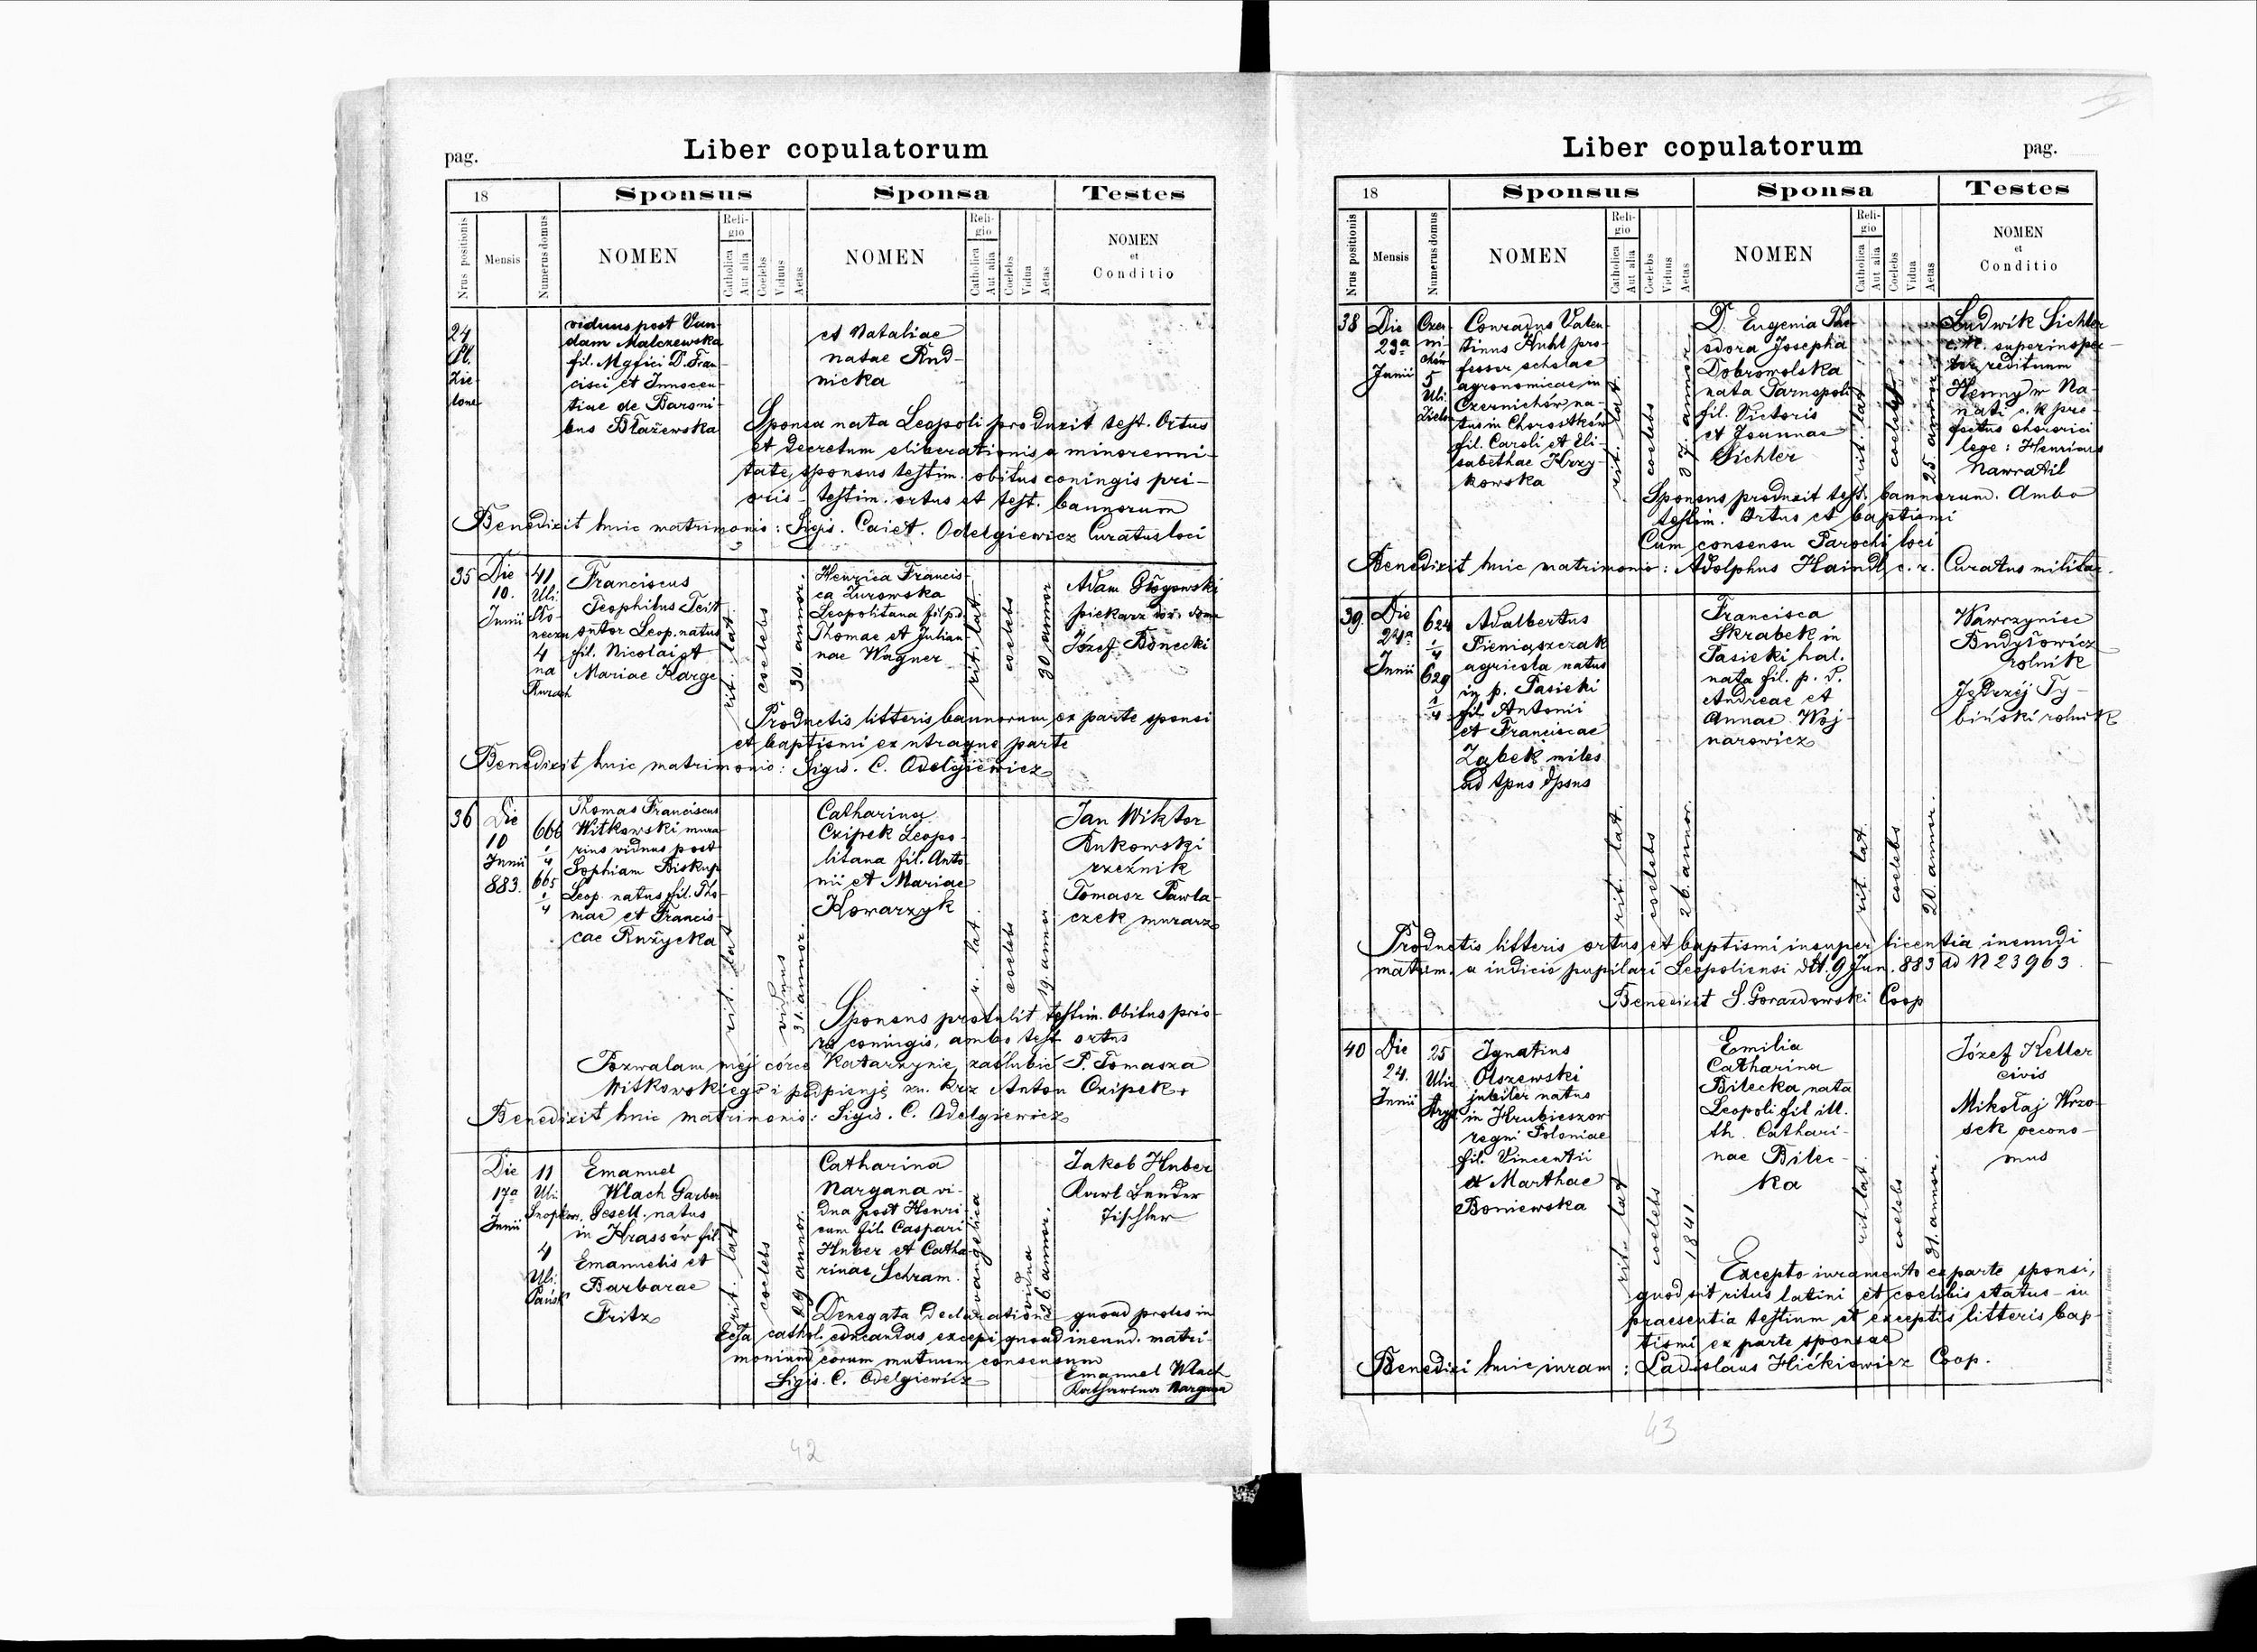 pag.
Liber copulatorum
18
Sponsus
Sponsa
Testes
Nrus positionis
Mensis
Numerus domus
NOMEN
Religio
Catholica
Aut alia
Coelebs
Viduus
Aetas
NOMEN
Religio
Catholica
Aut alia
Coelebs
Vidua
Aetas
NOMEN
et
Conditio
24
Pl.
Zie-
lone
viduus post Van-
dam Malczewska
fil. Mgfici D. Fran-
cisci et Innocen-
tiae de Baroni-
bus Błażewska
et Nataliae
natae Rud-
nicka
Sponsa nata Leopoli produxit test. Ortus
et decretum eliberationis a minorenni-
tate, sponsus testim. obitus coniugis pri-
oris - testim. ortus et test. bannorum
Benedixit huic matrimonio: Sigis. Caiet. Odelgiewicz Curatus loci
35
Die
10.
Junii
41
Uli.
Sło-
neczn
4
na
Rurach
Franciscus
Teophilus Teit
sutor Leop. natus
fil. Nicolai et
Mariae Karge
rit. lat
coelebs
30. annor.
Henrica Francis-
ca Żurowska
Leopolitana fil p.d.
Thomae et Julian
nae Wagner
rit. lat.
coelebs
30 annor
Adam Głogowski
piekarz
Józef Bonecki
Productis litteris bannorum ex parte sponsi
et baptismi ex utraque parte
Benedixit huic matrimonio: Sigis. C. Odelgiewicz
36
Die
10
Junii
883.
666
1/4
665
1/4
Thomas Franciscus
Witkowski mura-
rius viduus post
Sophiam Biskup
Leop. natus fil. Tho-
mae et Francis-
cae Rużycka
rit. lat
viduus
31. annor.
Catharina
Czipek Leopo-
litana fil. Anto-
nii et Mariae
Kowarzyk
r. lat.
coelebs
19. annor
Jan Wiktor
Rukowski
rzeźnik
Tomasz Pawla-
czek murarz
Sponsus protulit testim. Obitus prio-
ris coniugis, ambo test ortus
Pozwalam mej córce Katarzynie zaślubić P. Tomasza
Witkowskiego i podpisuję zn. krz Anton Czipek +
Benedixit huic matrimonio: Sigis. C. Odelgiewicz
Die
17a
Junii
11
Uli.
Snopkow.
4
Uli.
Pańsk
Emanuel
Wlach Garber
Gesell. natus
in Krassór fil.
Emanuelis et
Barbarae
Fritz
rit. lat
coelebs
29 annor.
Catharina
Nargana vi-
dua post Henri-
cum fil. Caspari
Huber et Catha-
rinae Schram.
evangelica
vidua
26 annor.
Jakob Huber
Karl Bender
Tischler
Denegata declaratione quoad proles in
Eccla cathol. educandas excepi quoad ineund. matri-
monium eorum mutuum consensum
Sigis. C. Odelgiewicz
Emanuel Wlach
Katharina Nargana
42
Liber copulatorum
pag.
18
Sponsus
Sponsa
Testes
Nrus positionis
Mensis
Numerus domus
NOMEN
Religio
Catholica
Aut alia
Coelebs
Viduus
Aetas
NOMEN
Religio
Catholica
Aut alia
Coelebs
Vidua
Aetas
NOMEN
et
Conditio
38
Die
23a
Junii
Czer-
ni-
chów
5
Uli.
Zielon
Conradus Valen-
tinus Huhl pro-
fessor scholae
agronomicae in
Czernichów na-
tus in Chorostków
fil. Caroli et Eli-
sabethae Krzy-
kowska
rit. lat.
coelebs
37. annor
D. Eugenia The-
odora Josepha
Dobrowolska
nata Tarnopoli
fil. Victoris
et Joannae
Sichler
rit. lat.
coelebs
25. annor
Ludwik Sichler
c.k. superinspec-
tor redituum
Henryk Na-
nati c.k prae-
fectus
lege: Henricus
Nawratil
Sponsus produxit test. bannorum. Ambo
testim. Ortus et baptismi
Cum consensu Parochi loci
Benedixit huic matrimonio: Adolphus Haindl c. r. Curatus militar.
39.
Die
24a
Junii
624
1/4
629
1/4
Adalbertus
Pieniąszczak
agricola natus
in p. Pasieki
fil. Antonii
et Franciscae
Ząbek miles
ad tpus dpsns
rit. lat.
coelebs
26. annor.
Francisca
Skrabek in
Pasieki hal.
nata fil. p. d.
Andreae et
Annae Woj-
narowicz
rit. lat.
coelebs
20. annor.
Wawrzyniec
Budyłowicz
rolnik
Jędrzéj Ty-
biński rolnik
Productis litteris ortus et baptismi insuper licentia ineundi
matrim. a iudicio pupilari Leopoliensi ddt. 9 Jun. 883 ad N 23963
Benedixit S. Gorazdowski Coop
40
Die
24.
Junii
25
Ulic
Stryj
Ignatius
Olszewski
jubiler natus
in Hrubieszow
regni Poloniae
fil. Vincentii
et Marthae
Boniewska
rit. lat
coelebs
1841.
Emilia
Catharina
Bilecka nata
Leopoli fil ill.
th. Cathari-
nae Bilec-
ka
rit lat.
coelebs
31. annor.
Józef Keller
civis
Mikołaj Wrzo-
sek oecono-
mus
Excepto iuramento ex parte sponsi,
quod sit ritus latini et coelibis status - in
praesentia testium et exceptis litteris bap-
tismi ex parte sponsae
Benedixi huic iuram: Ladislaus Hićkiewicz Coop.
43